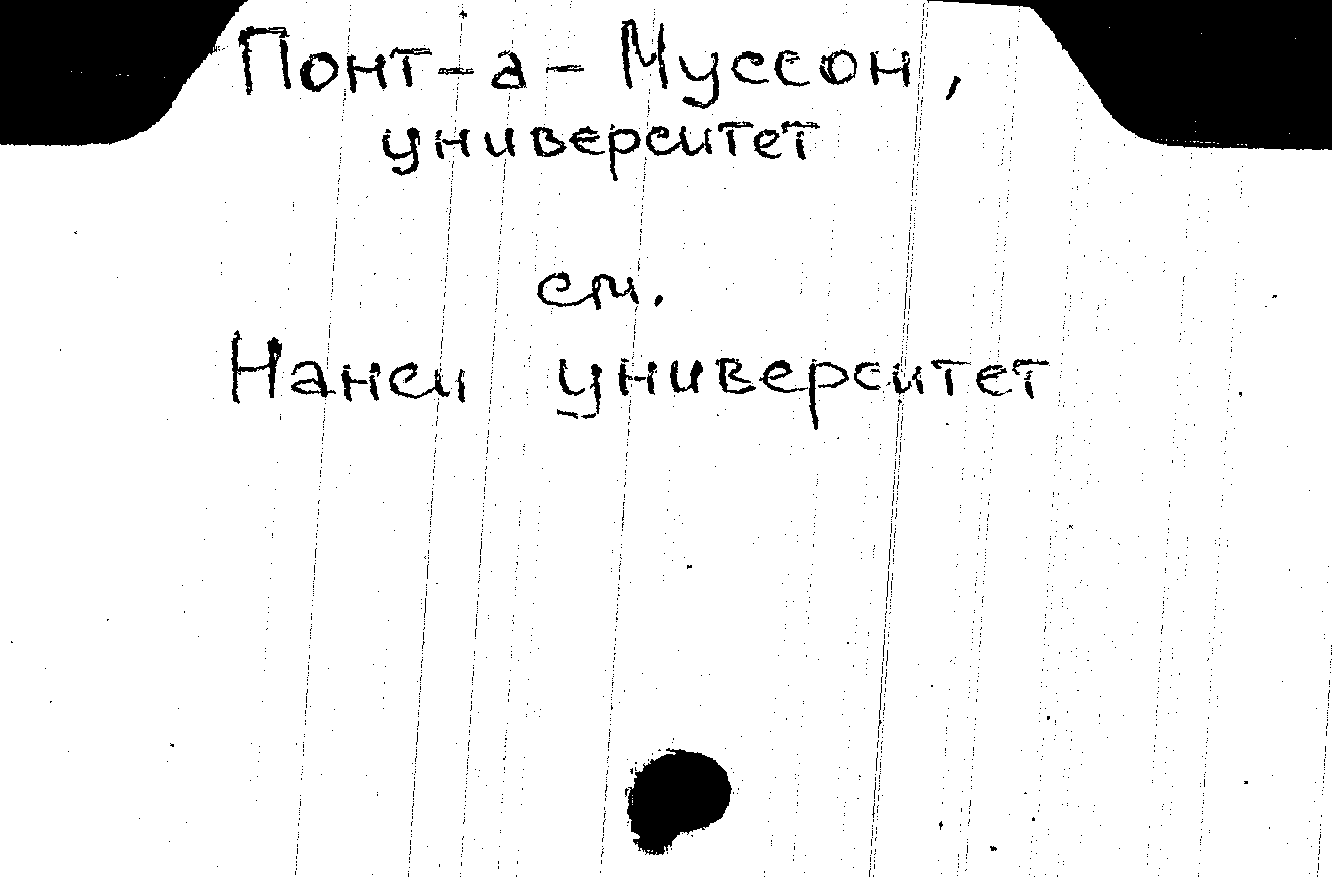 Понт-а-Муссон,
университет
см.
Нанси университет